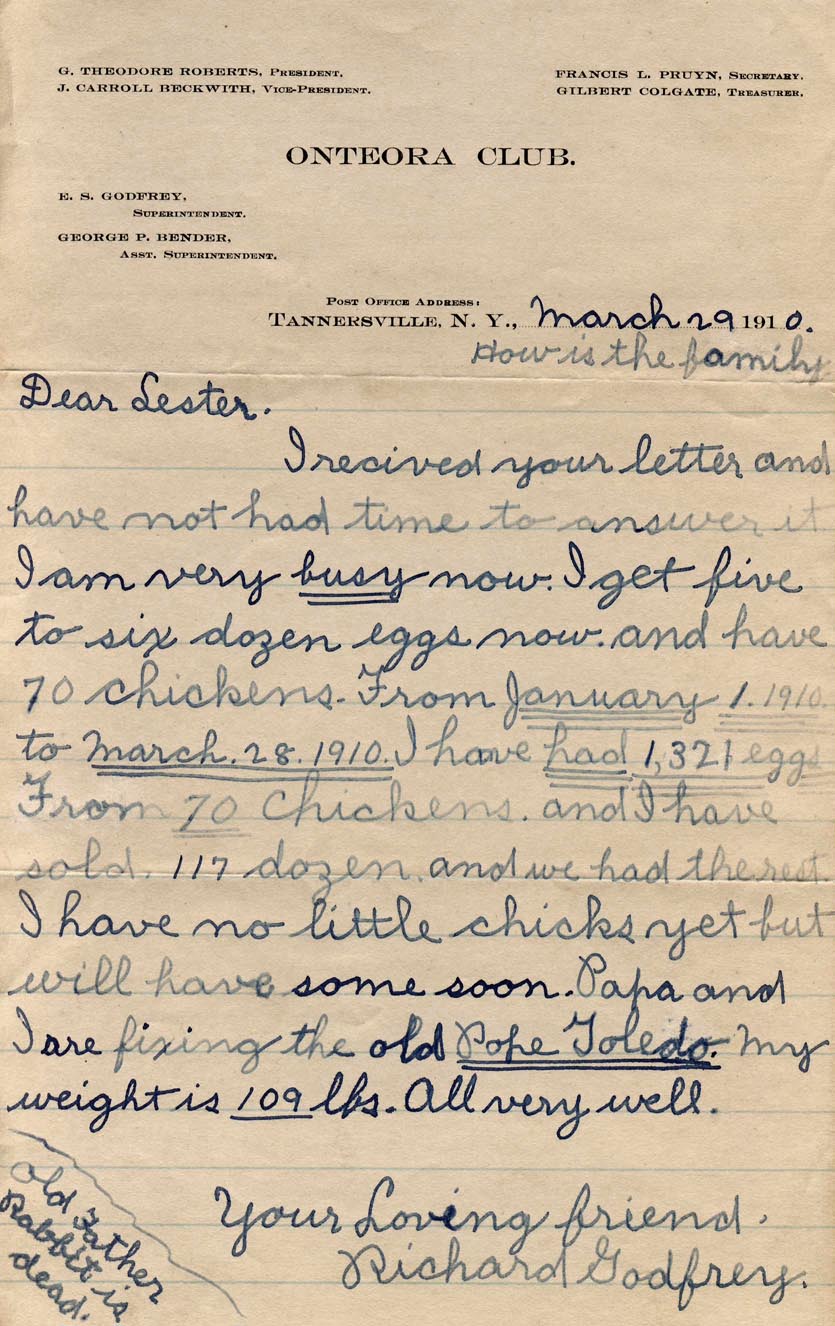 G. THEODORE ROBERTS, PRESIDENT.
J. CARROLL BECKWITH, VICE-PRESIDENT.
FRANCIS L. PRUYN, SECRETARY.
GILBERT COLGATE, TREASURER.
ONTEORA CLUB.
E. S. GODFREY,
SUPERINTENDENT.
GEORGE P. BENDER,
ASST. SUPERINTENDENT.
POST OFFICE ADDRESS:
TANNERSVILLE, N. Y., March 29 1910.
How is the family
Dear Lester.
I recived your letter and
have not had time to answer it
I am very busy now. I get five
to six dozen eggs now. and have
70 chickens. From January 1. 1910.
to March. 28. 1910. I have had 1,321 eggs
From 70 Chickens. and I have
sold. 117 dozen. and we had the rest.
I have no little chicks yet but
will have some soon. Papa and
I are fixing the old Pope Toledo. My
weight is 109 lbs. All very well.
Your Loving friend.
Richard Godfrey.
Old Father
Rabbit is
dead.